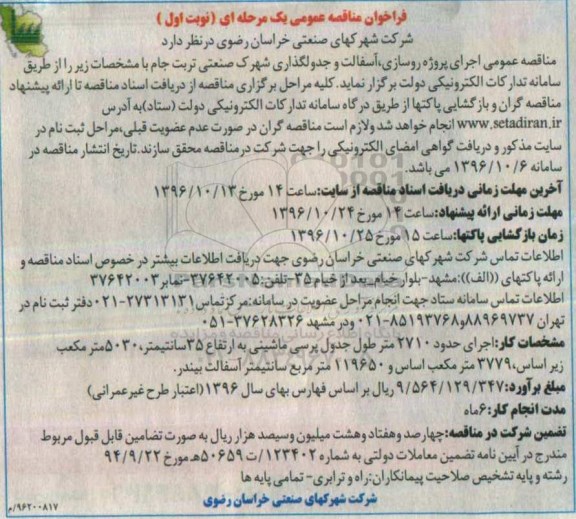 فراخوان مناقصه عمومی یک مرحله ای ( نوبت اول )
شرکت شهرکهای صنعتی خراسان رضوی درنظر دارد
مناقصه عمومی اجرای پروژه روسازی،آسفالت و جدولگذاری شهرک صنعتی تربت جام با مشخصات زیر را از طریق
سامانه تدارکات الکترونیکی دولت برگزار نماید. کلیه مراحل برگزاری مناقصه از دریافت اسناد مناقصه تا ارائه پیشنهاد
مناقصه گران و بازگشایی پاکتها از طریق درگاه سامانه تدارکات الکترونیکی دولت (ستاد)به آدرس
www.setadiran.ir انجام خواهد شد ولازم است مناقصه گران در صورت عدم عضویت قبلی،مراحل ثبت نام در
سایت مذکور و دریافت گواهی امضای الکترونیکی را جهت شرکت درمناقصه محقق سازند.تاریخ انتشار مناقصه در
سامانه ۱۳۹۶/۱۰/۶ می باشد.
آخرین مهلت زمانی دریافت اسناد مناقصه از سایت:ساعت ۱۴ مورخ ۱۳۹۶/۱۰/۱۳
مهلت زمانی ارائه پیشنهاد:ساعت ۱۴ مورخ ۱۳۹۶/۱۰/۲۴
زمان بازگشایی پاکتها:ساعت ۱۵ مورخ ۱۳۹۶/۱۰/۲۵
اطلاعات تماس شرکت شهرکهای صنعتی خراسان رضوی جهت دریافت اطلاعات بیشتر در خصوص اسناد مناقصه و
ارائه پاکتهای ((الف)):مشهد-بلوار خیام_بعد از خیام ۳۵-تلفن:۳۷۶۴۲۰۰۵-نمابر۳۷۶۴۲۰۰۳
اطلاعات تماس سامانه ستاد جهت انجام مراحل عضویت در سامانه:مرکزتماس۲۷۳۱۳۱۳۱-۰۲۱دفتر ثبت نام در
تهران ۸۸۹۶۹۷۳۷و۸۵۱۹۳۷۶۸-۰۲۱ ودر مشهد ۳۷۶۲۸۳۲۶-۰۵۱
مشخصات کار:اجرای حدود ۲۷۱۰ متر طول جدول پرسی ماشینی به ارتفاع ۳۵سانتیمتر،۵۰۳۰متر مکعب
زیراساس،۳۷۷۹ متر مکعب اساس و ۱۱۹۶۵۰ متر مربع سانتیمتر آسفالت بیندر.
مبلغ برآورد:۹/۵۶۴/۱۲۹/۳۴۷ ریال بر اساس فهارس بهای سال ۱۳۹۶(اعتبار طرح غیرعمرانی)
مدت انجام کار:۶ماه
تضمین شرکت در مناقصه:چهارصد وهفتاد وهشت میلیون وسیصد هزار ریال به صورت تضامین قابل قبول مربوط
مندرج در آیین نامه تضمین معاملات دولتی به شماره ۱۲۳۴۰۲/ت ۵۰۶۵۹هـ مورخ ۹۴/۹/۲۲
رشته و پایه تشخیص صلاحیت پیمانکاران:راه و ترابری- تمامی پایه ها
شرکت شهرکهای صنعتی خراسان رضوی
۹۶۲۰۰۸۱۷/م